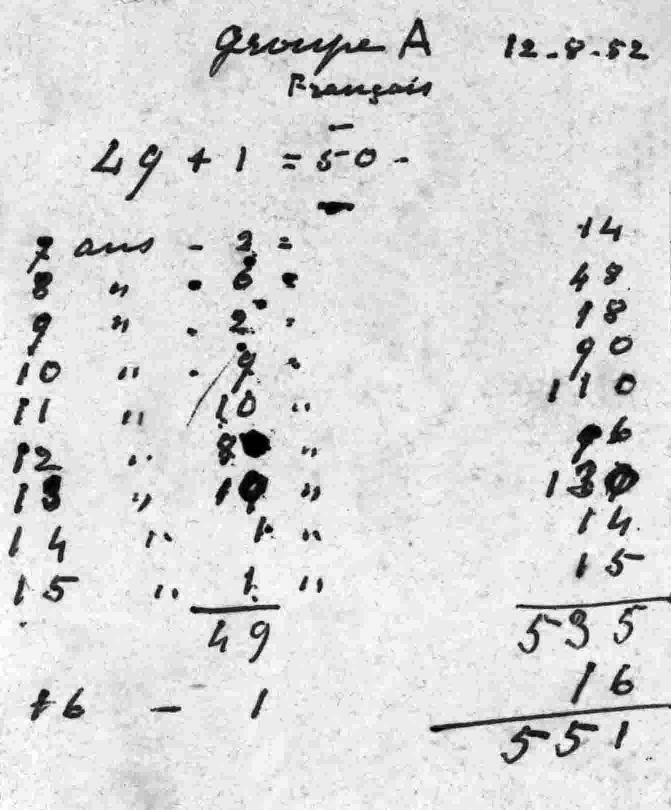 groupe A 12-8-52
Français
49 + 1 = 50 -
7 ans - 2 = 14
8 " - 6 = 48
9 " - 2 " 18
10 " - 9 " 90
11 " 10 " 110
12 " 8 " 96
13 " 10 " 130
14 " 1 " 14
15 " 1 " 15
49 535
16 - 1 16
551